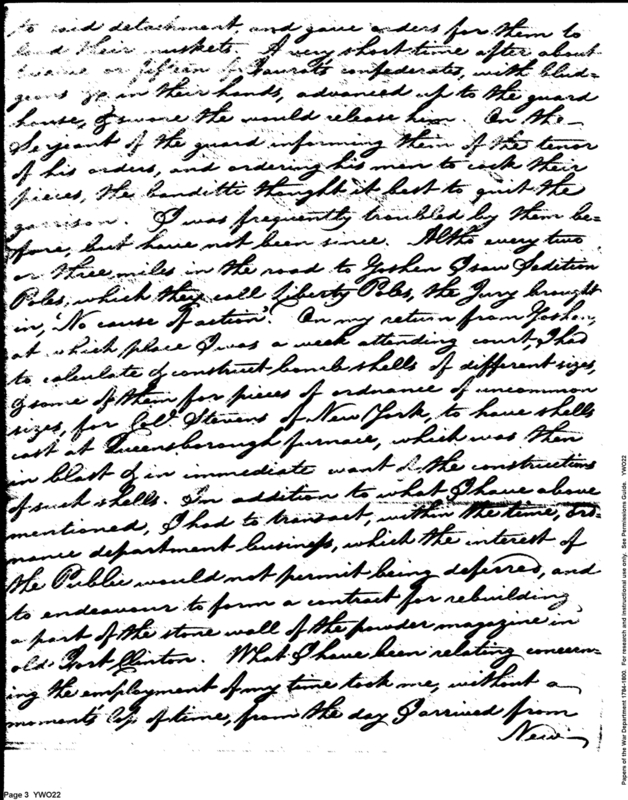 to said detachment and gave orders for them to
load their muskets. A very short time after about
twelve or fifteen of confederates, with blud=
geons in their hands, advanced up to the guard
house, & swore the would release him. On the
Sergeant of the guard informing them of the tenor
of his orders, and ordering his men to cock their
pieces, the banditti thought it best to quit the
garrison. I was frequently troubled by them be=
fore, but have not been since. Altho every two
or three miles in the road to Goshen I saw Sedition
Poles, which they call Liberty Poles, the Jury brought
in, "No cause of action". On my return from Goshen,
at which place I was a week attending court, I had
to calculate & construct bomb shells of different sizes,
& some of them for pieces of ordnance of uncommon
sizes, for Col. Stevens of New York, to have shells
cast at Queensborough furnace, which was then
in blast & in immediate want of the constructions
of such shells. In addition to what I have above
mentioned, I had to transact, within the time, ord=
nance department business, which the interest of
the Public would not permit being deferred, and
to endeavour to form a contract for rebuilding
a part of the stone wall of the powder magazine in
old Fort Clinton. What I have been relating concern=
ing the employment of my time took me, without a
moments loss of time, from the day I arrived from
New
Page 3 YWO22
Papers of the War Department 1784-1800. For research and instructional use only. See Permissions Guide. YWO22